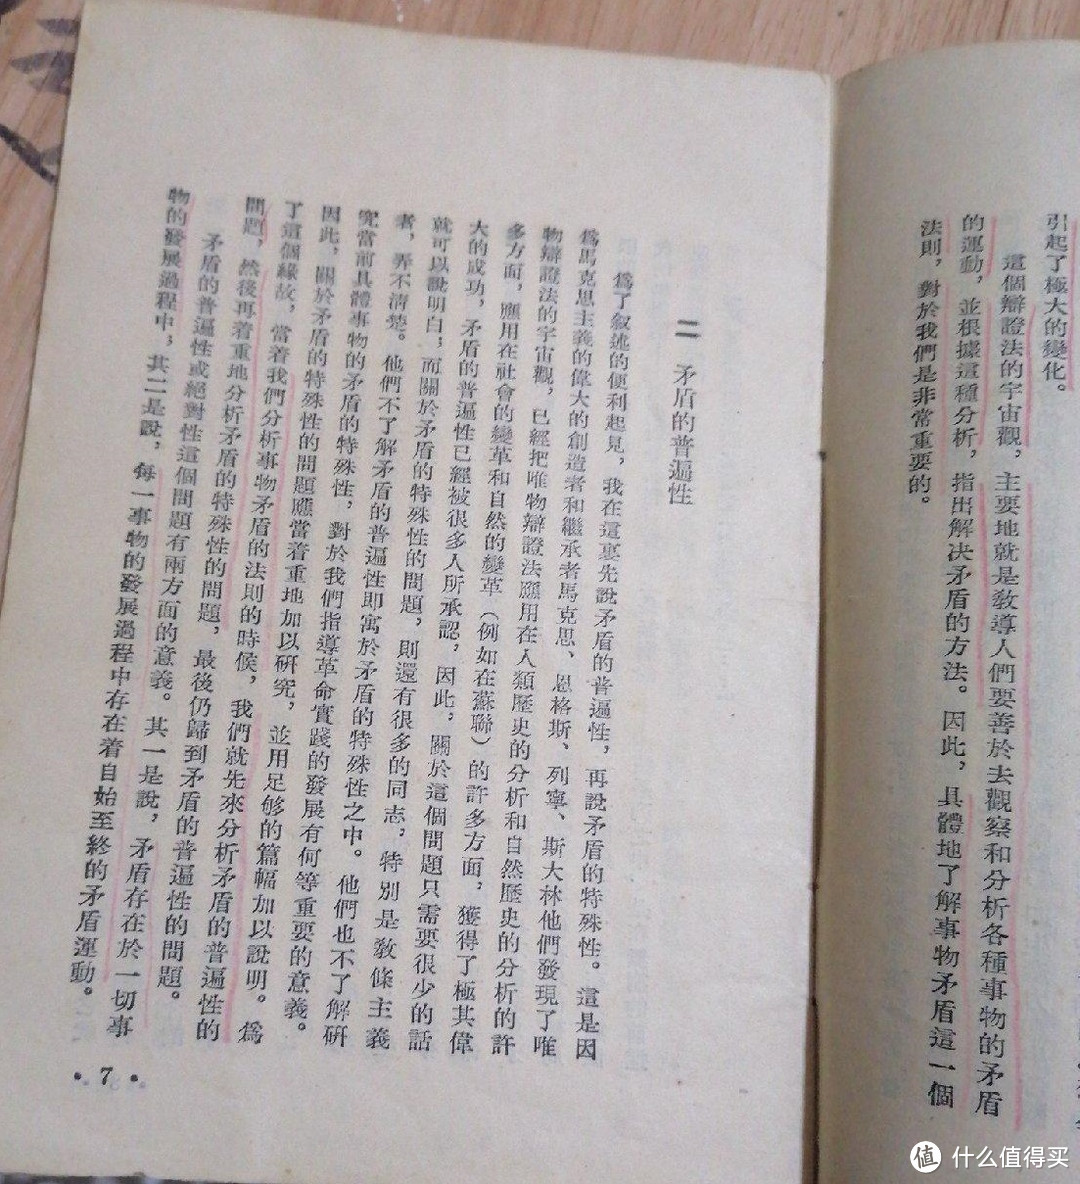 引起了極大的變化。
這個辯證法的宇宙觀，主要地就是敎導人們要善於去觀察和分析各種事物的矛盾
的運動，並根據這種分析，指出解決矛盾的方法。因此，具體地了解事物矛盾這一個
法則，對於我們是非常重要的。
二 矛盾的普遍性
爲了敍述的便利起見，我在這裏先說矛盾的普遍性，再說矛盾的特殊性。這是因
爲馬克思主義的偉大的創造者和繼承者馬克思、恩格斯、列寧、斯大林他們發現了唯
物辯證法的宇宙觀，已經把唯物辯證法應用在人類歷史的分析和自然歷史的分析的許
多方面，應用在社會的變革和自然的變革（例如在蘇聯）的許多方面，獲得了極其偉
大的成功，矛盾的普遍性已經被很多人所承認，因此，關於這個問題只需要很少的話
就可以說明白；而關於矛盾的特殊性的問題，則還有很多的同志，特別是敎條主義
者，弄不清楚。他們不了解矛盾的普遍性卽寓於矛盾的特殊性之中。他們也不了解硏
究當前具體事物的矛盾的特殊性，對於我們指導革命實踐的發展有何等重要的意義。
因此，關於矛盾的特殊性的問題應當着重地加以硏究，並用足够的篇幅加以說明。爲
了這個緣故，當着我們分析事物矛盾的法則的時候，我們就先來分析矛盾的普遍性的
問題，然後再着重地分析矛盾的特殊性的問題，最後仍歸到矛盾的普遍性的問題。
矛盾的普遍性或絕對性這個問題有兩方面的意義。其一是說，矛盾存在於一切事
物的發展過程中；其二是說，每一事物的發展過程中存在着自始至終的矛盾運動。
• 7 •
值 什么值得买